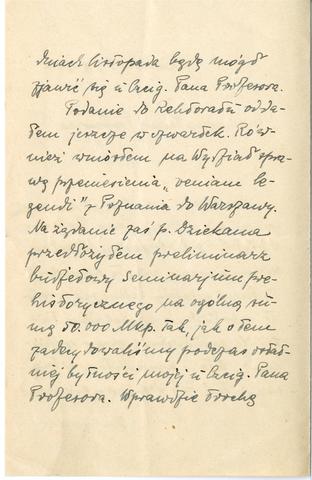 dniach listopada będę mógł
zjawić się u Czcig. Pana Profesora.
Podanie do Rektoratu odda-
łem jeszcze w czwartek. Rów-
nież wniosłem na Wydział spra-
wę przeniesienia „veniam le-
gendi” z Poznania do Warszawy.
Na żądanie zaś p. Dziekana
przedłożyłem preliminarz
budżetowy Seminarjum pre-
historycznego na ogólną su-
mę 50.000 Mkp. tak, jak o tem
zadecydowaliśmy podczas ostat-
niej bytności mojej u Czcig. Pana
Profesora. Wprawdzie trochę